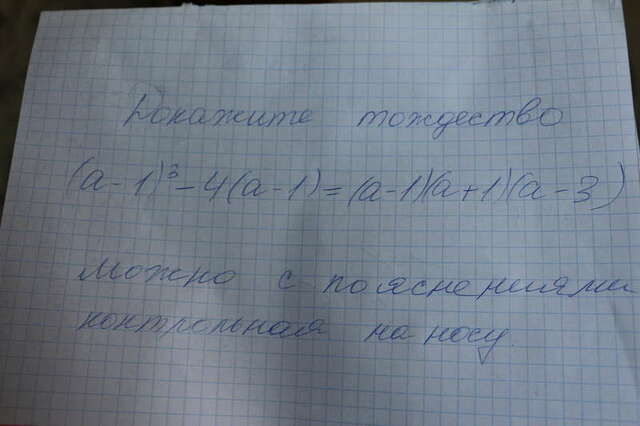 Докажите тождество
(a-1)³-4(a-1)=(a-1)(a+1)(a-3)
Можно с пояснениями
контрольная на носу.